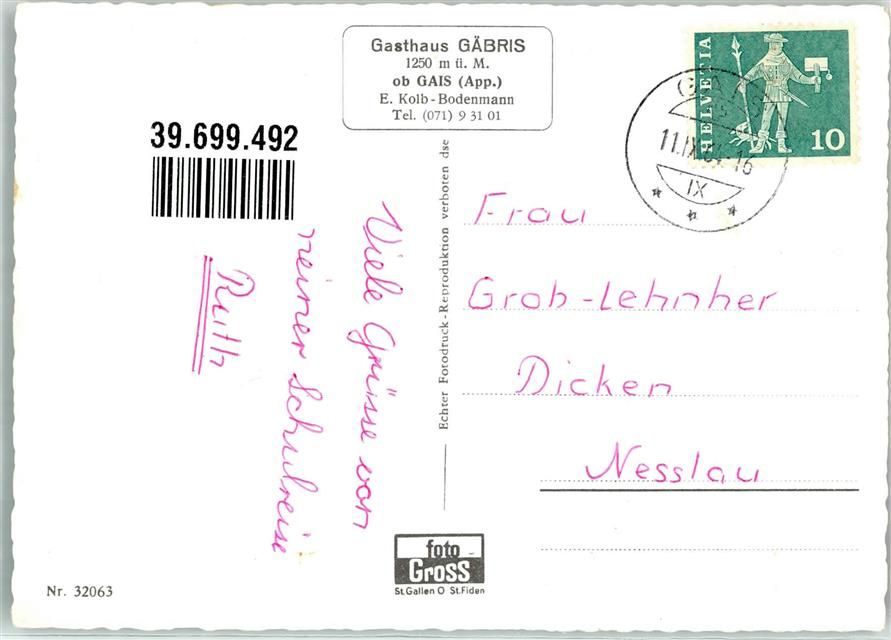 Gasthaus GÄBRIS
1250 m ü. M.
ob GAIS (App.)
E. Kolb-Bodenmann
Tel. (071) 9 31 01
HELVETIA
10
GAIS
11.IX.64-16
IX
39.699.492
Viele Grüsse von
meiner Schulreise
Ruth
Echter Fotodruck-Reproduktion verboten dse
Frau
Grob-Lehnherr
Dicken
Nesslau
foto
Gross
St.Gallen O St.Fiden
Nr. 32063